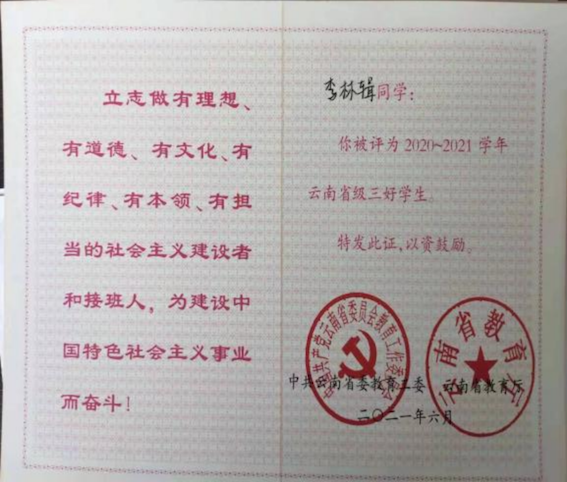 立志做有理想、
有道德、有文化、有
纪律、有本领、有担
当的社会主义建设者
和接班人，为建设中
国特色社会主义事业
而奋斗！
李林辑同学：
你被评为2020~2021学年
云南省级三好学生。
特发此证，以资鼓励。
中国共产党云南省委员会教育工作委员会
云南省教育厅
中共云南省委教育工委 云南省教育厅
二〇二一年六月